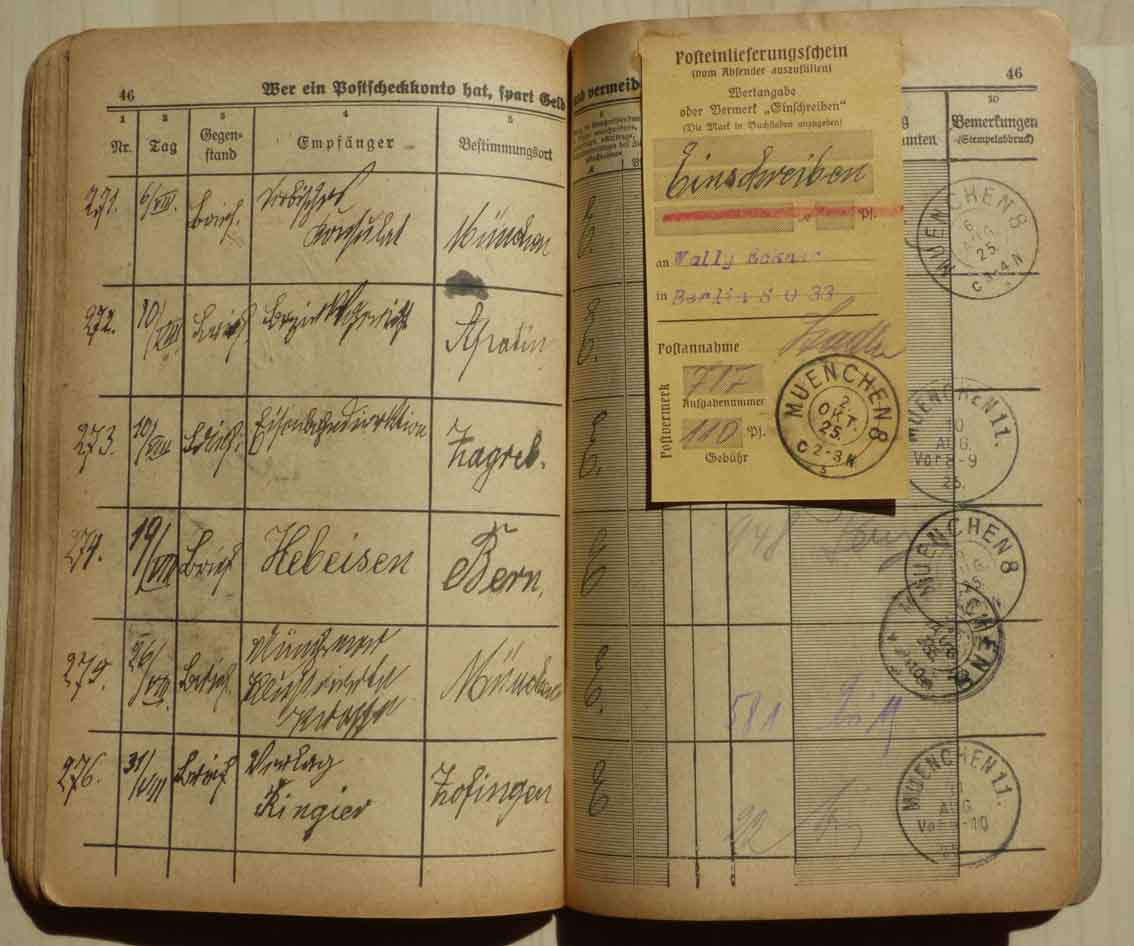 46
Wer ein Postscheckkonto hat, spart Geld
1 2 3 4 5
Nr. Tag Gegen-
stand Empfänger Bestimmungsort
271. 6/VIII. Brief. Serbisches
Konsulat München
272. 10/VIII. Brief. Bezirksgericht Apatin
273. 10/VIII Brief. Eisenbahndirektion Zagreb.
74. 19/VIII Brief Hebeisen Bern.
275. 26/VIII. Brief. Münchner
Illustrierte
Presse München
276. 31/VIII Brief Verlag
Ringier Zofingen
und vermeide
46
10
Bemerkungen
(Stempelabdruck)
E
E.
E.
E 948
E. 581
E 92
Posteinlieferungsschein
(vom Absender auszufüllen)
Wertangabe
oder Vermerk „Einschreiben"
(Die Mark in Buchstaben anzugeben)
Einschreiben
Pf.
an Wally
in Berlin S O 33
Postannahme
Postvermerk
717
Aufgabenummer
110 Pf.
Gebühr
MUENCHEN 8
2.
OKT.
25.
C 2-3 N
MUENCHEN 8
6.
AUG.
25.
C 3-4 N
MUENCHEN 11.
10
AUG.
Vor 8-9
25.
MUENCHEN 8
AUG.
25.
MUENCHEN 11.
31
AUG.
Vor 9-10